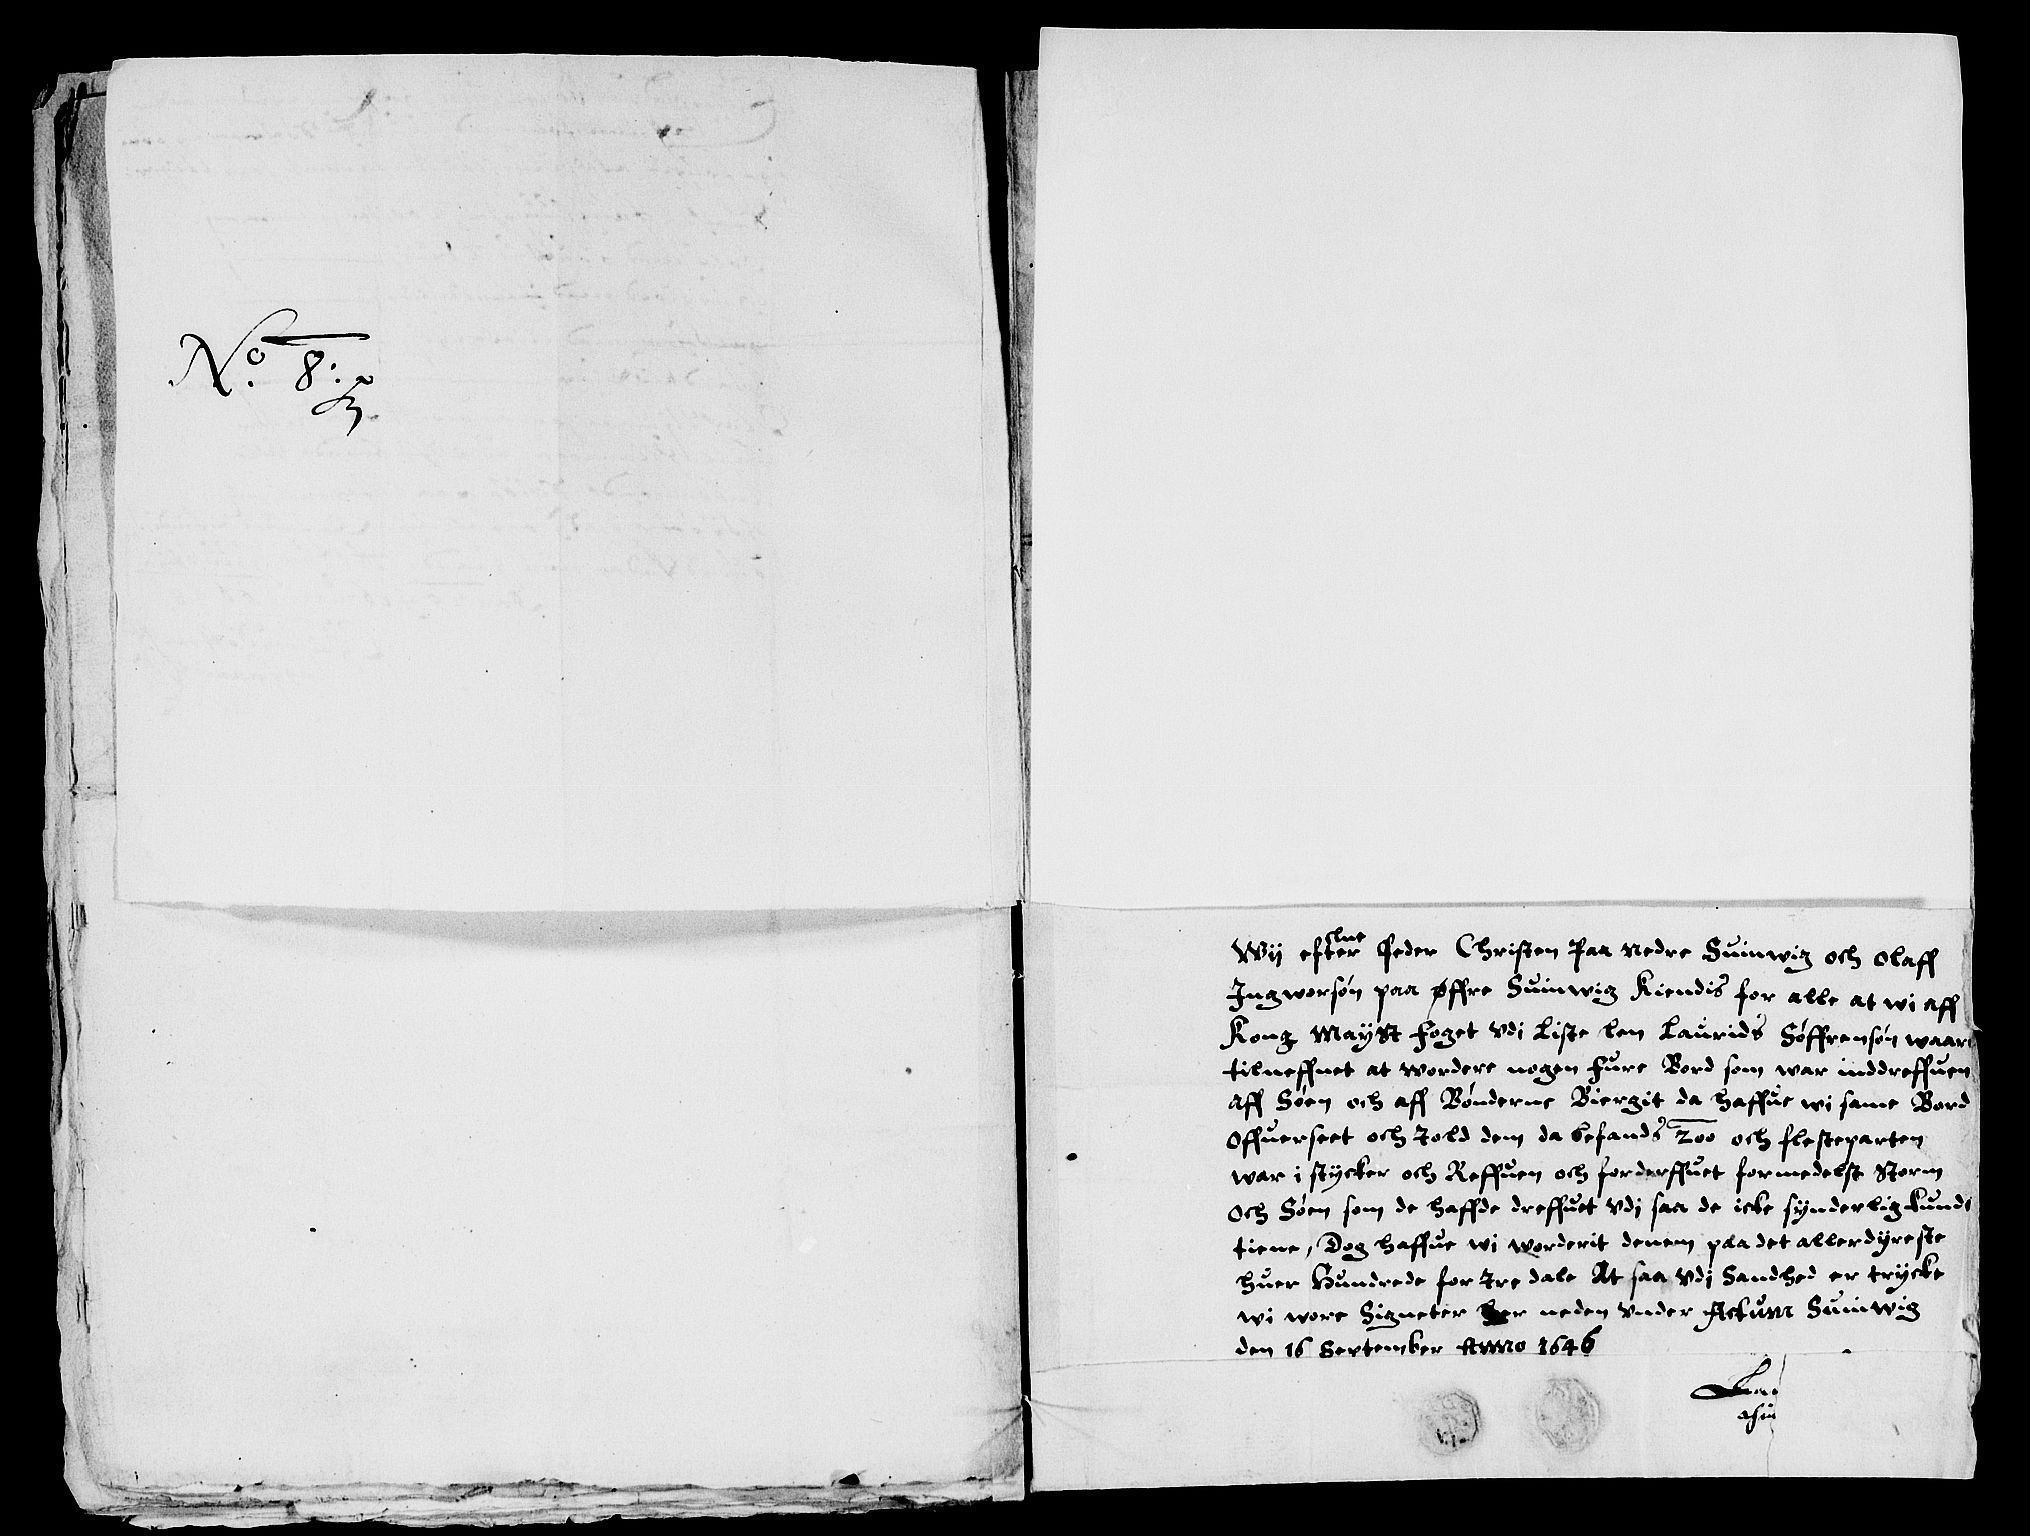 No. 8:
Wij efter
Peder Christen Paa Nedre Suinwig och Olaff
Ingworsøn paa øffre Suinwig Kiendis for alle at wi aff
Kong Maÿst Foget Vdi Liste len Laurids Søffrensøn waar
tilneffnet at wordere nogen Fure Bord som war inddreffuen
aff Søen och aff Bønderne Biergit da haffue wi same Bord
Offuerseet och Told dem da befands 200 och flesteparten
war i stÿcker och Reffuen och forderffuet formedelst Storm
Och Søen som de haffde dreffuet Vdj saa de icke sÿnderlig kunde
tiene, Dog haffue wi worderit denem paa det allerdÿreste
huer Hundrede for Tre dale At saa Vdj Sandhed er trÿcke
wi wore Signeter her neden Vnder Actum Suinwig
den 16 September Anno 1646